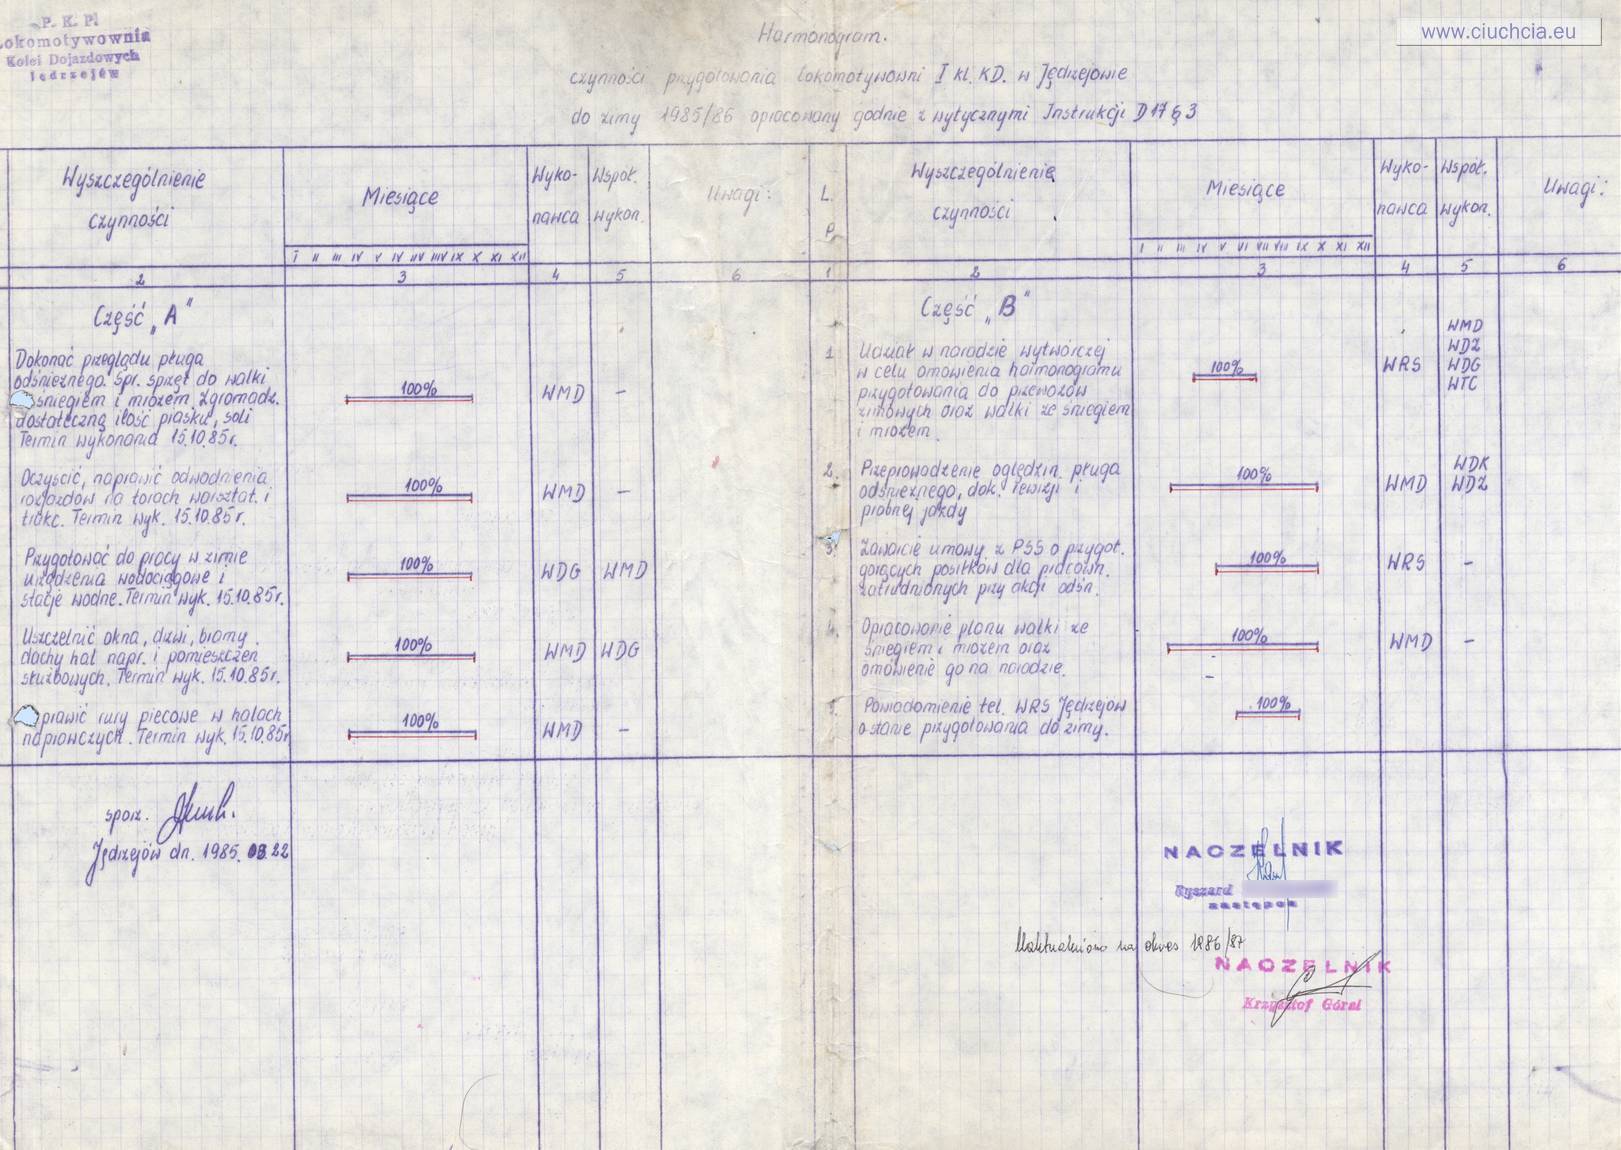 P. K. P.
Lokomotywownia
Kolei Dojazdowych
Jędrzejów
www.ciuchcia.eu
Harmonogram.
czynności przygotowania lokomotywowni I kl. KD. w Jędrzejowie
do zimy 1985/86 opracowany godnie z wytycznymi Instrukcji D17 § 3
Wyszczególnienie
czynności
Miesiące
I II III IV V IV IIV IIIV IX X XI XII
Wyko-
nawca
Współ.
wykon.
Uwagi:
2 3 4 5 6
Część „A"
Dokonać przeglądu pługa
odśnieżnego. Spr. sprzęt do walki
śniegiem i mrozem. Zgromadz.
dostateczną ilość piasku, soli
Termin wykonania 15.10.85r.
100%
WMD
–
Oczyścić, naprawić odwodnienia
rozjazdów na torach warsztat. i
trakc. Termin wyk. 15.10.85r.
100%
WMD
–
Przygotować do pracy w zimie
urządzenia wodociągowe i
stacje wodne. Termin wyk. 15.10.85r.
100%
WDG
WMD
Uszczelnić okna, drzwi, bramy
dachy hal napr. i pomieszczeń
służbowych. Termin wyk. 15.10.85r.
100%
WMD
WDG
prawić rury piecowe w halach
naprawczych. Termin wyk. 15.10.85r
100%
WMD
–
sporz.
Jędrzejów dn. 1985. 08.22
L.
P.
Wyszczególnienie
czynności
Miesiące
I II III IV V VI VII VIII IX X XI XII
Wyko-
nawca
Współ.
wykon.
Uwagi:
1 2 3 4 5 6
Część „B"
1. Udział w naradzie wytwórczej
w celu omówienia harmonogramu
przygotowania do przewozów
zimowych oraz walki ze śniegiem
i mrozem.
100%
WRS
WMD
WDZ
WDG
WTC
2. Przeprowadzenie oględzin pługa
odśnieżnego, dok. rewizji i
próbnej jazdy
100%
WMD
WDK
WDZ
3. Zawarcie umowy z PSS o przygot.
gorących posiłków dla pracown.
zatrudnionych przy akcji odśn.
100%
WRS
–
4. Opracowanie planu walki ze
śniegiem i mrozem oraz
omówienie go na naradzie.
100%
WMD
–
5. Powiadomienie tel. WRS Jędrzejów
o stanie przygotowania do zimy.
100%
NACZELNIK
Ryszard
zastępca
Uaktualniono na okres 1986/87
NACZELNIK
Krzysztof Góral